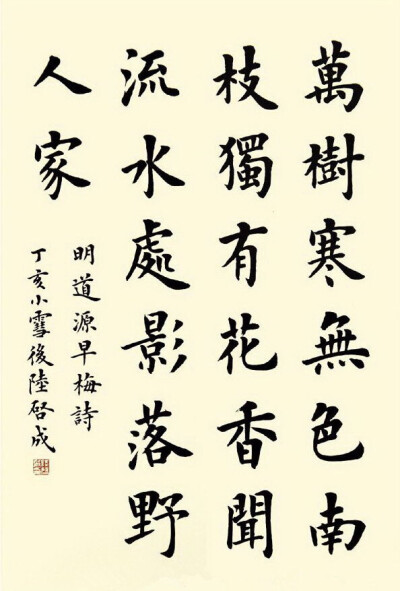 萬樹寒無色南
枝獨有花香聞
流水處影落野
人家
明道源早梅詩
丁亥小雪後陸啓成